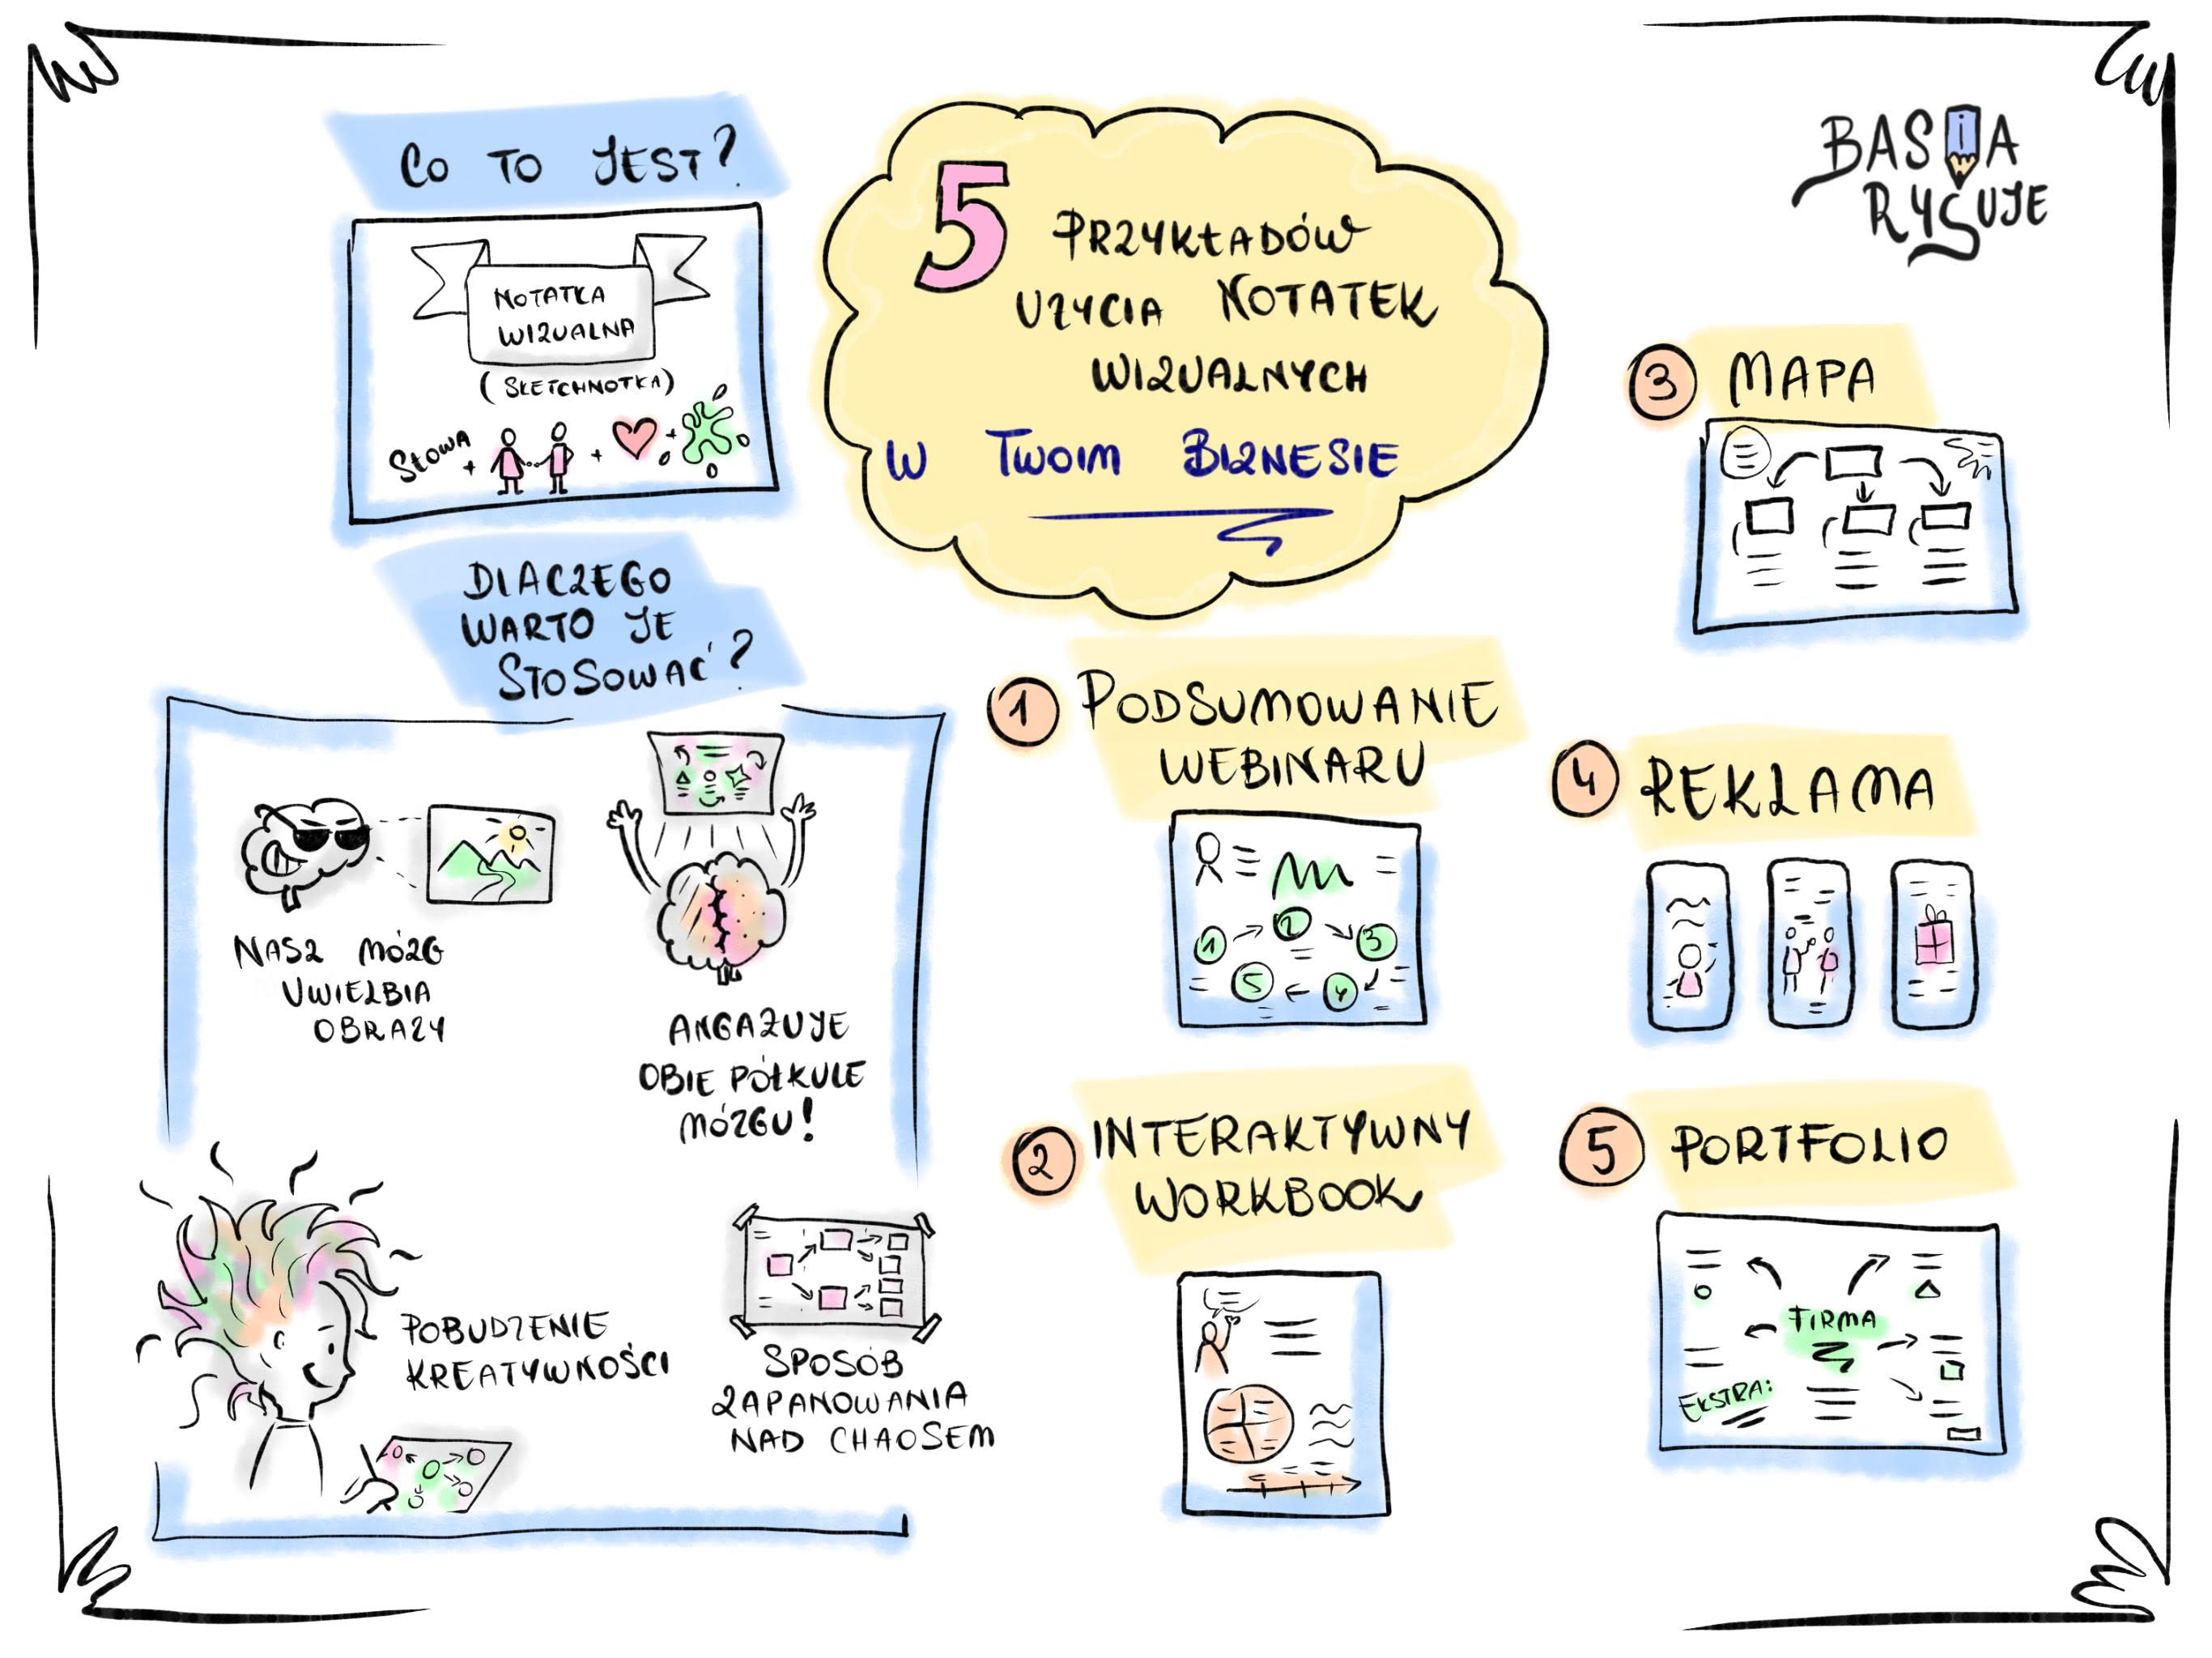 CO TO JEST?
NOTATKA
WIZUALNA
(SKETCHNOTKA)
SŁOWA + + +
5 PRZYKŁADÓW
UŻYCIA NOTATEK
WIZUALNYCH
W TWOIM BIZNESIE
BASIA
RYSUJE
DLACZEGO
WARTO JE
STOSOWAĆ?
NASZ MÓZG
UWIELBIA
OBRAZY
ANGAŻUJE
OBIE PÓŁKULE
MÓZGU!
POBUDZENIE
KREATYWNOŚCI
SPOSÓB
ZAPANOWANIA
NAD CHAOSEM
1 PODSUMOWANIE
WEBINARU
1 2 3
5 4
2 INTERAKTYWNY
WORKBOOK
3 MAPA
4 REKLAMA
5 PORTFOLIO
FIRMA
EKSTRA: